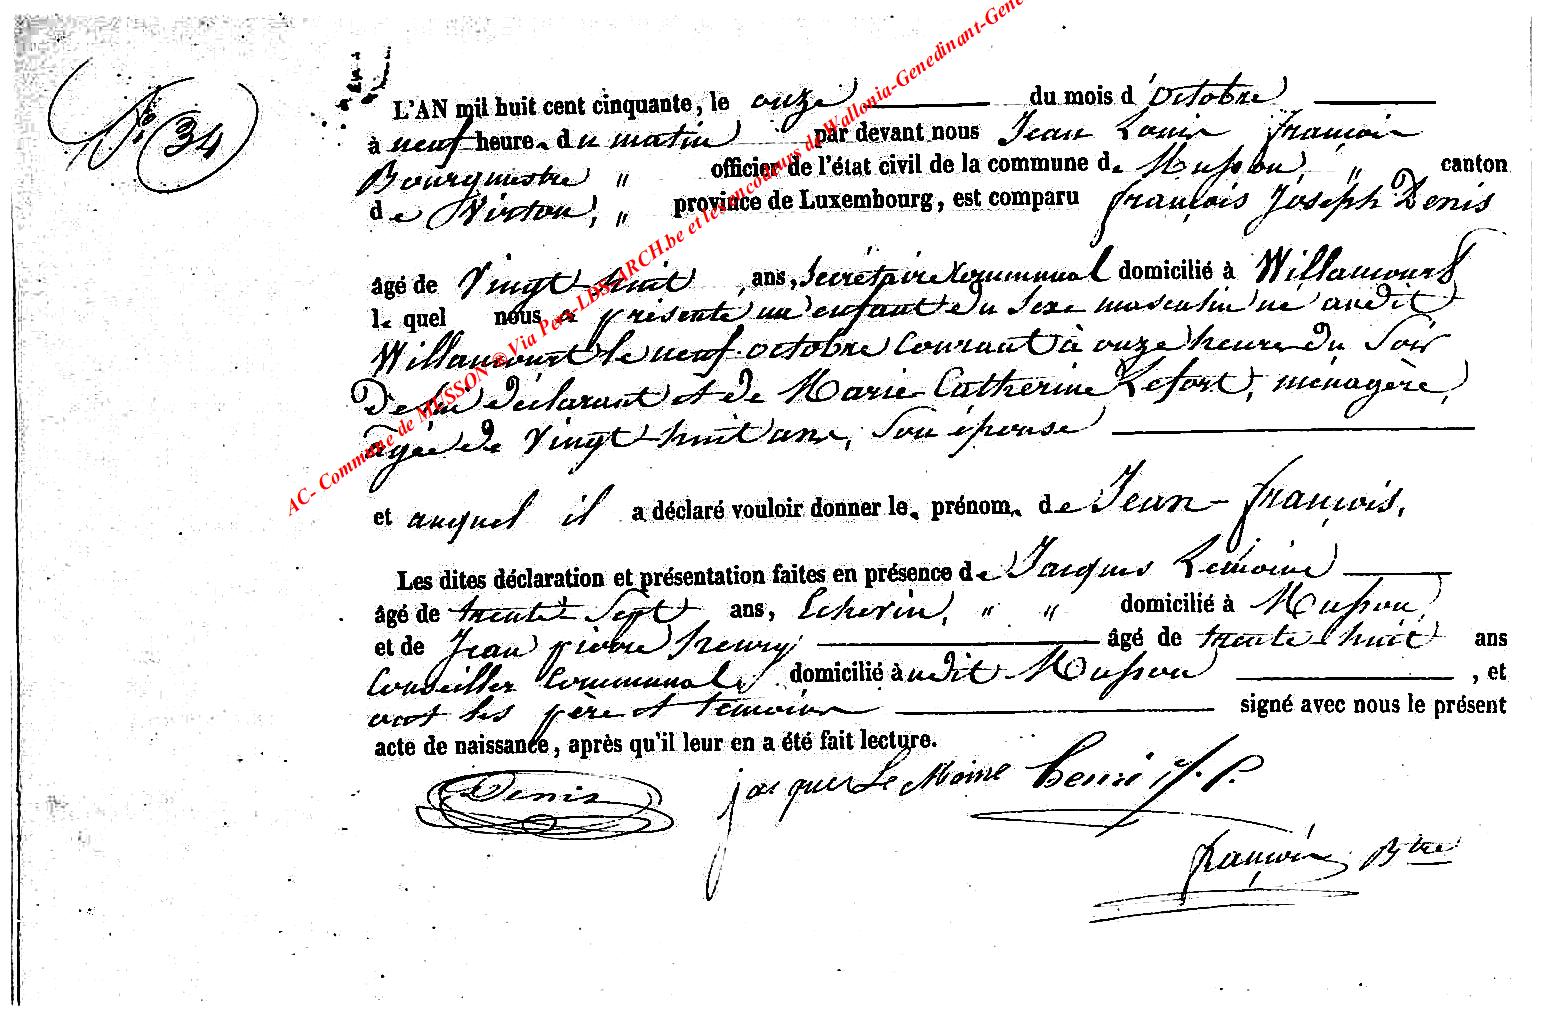 N° 34
L'AN mil huit cent cinquante, le onze du mois d'octobre
à neuf heures du matin par devant nous Jean Louis françois
Bourgmestre " officier de l'état civil de la commune de Musson, " canton
de Virton, " province de Luxembourg, est comparu françois Joseph Denis
âgé de Vingt-huit ans, Secrétaire Communal domicilié à Willancourt
lequel nous a présenté un enfant du Sexe masculin né audit
Willancourt le neuf octobre Courant à onze heures du Soir
De lui déclarant et de Marie Catherine Lefort, ménagère,
agée de Vingt-huit ans, Son épouse
et auquel il a déclaré vouloir donner les prénoms de Jean-françois,
Les dites déclaration et présentation faites en présence de Jacques Lemoine
âgé de trente Sept ans, Echevin, " " domicilié à Musson,
et de Jean pierre henry âgé de trente huit ans
Conseiller Communal, domicilié àudit Musson , et
ont les père et témoins signé avec nous le présent
acte de naissance, après qu'il leur en a été fait lecture.
Denis jacques Le Moine henri j. P.
françois Btre
AC- Commune de MUSSON ® Via Pers-LDS-ARCH.be et les encodeurs de Wallonia-Genedinant-Gene